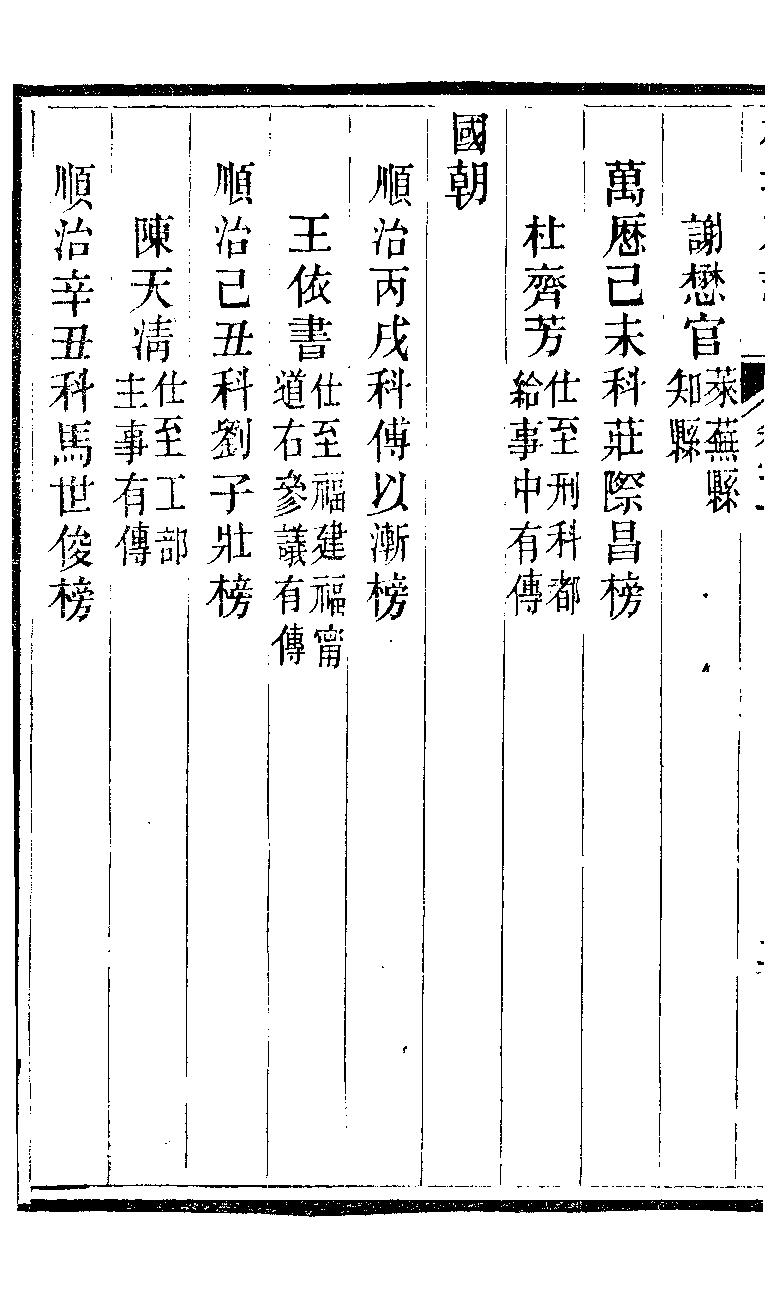 謝懋官萊蕪縣知縣
萬厯己未科莊際昌榜
杜齊芳仕至刑科都給事中有傳
國朝
順治丙戌科傅以漸榜
王依書仕至福建福甯道右參議有傳
順治己丑科劉子壯榜
陳天清仕至工部主事有傳
順治辛丑科馬世俊榜